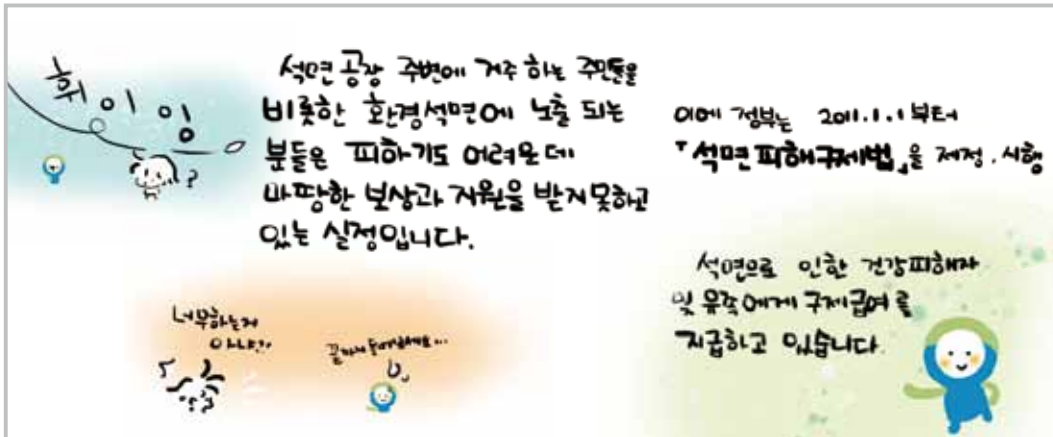 휘이잉
?
석면 공장 주변에 거주 하는 주민들을
비롯한 환경석면에 노출 되는
분들은 피하기도 어려운데
마땅한 보상과 지원을 받지못하고
있는 실정입니다.
너무하는거
아냐?!
끝까지 들어보세요...
이에 정부는 2011.1.1부터
「석면피해구제법」을 제정.시행
석면으로 인한 건강피해자
및 유족에게 구제급여를
지급하고 있습니다.